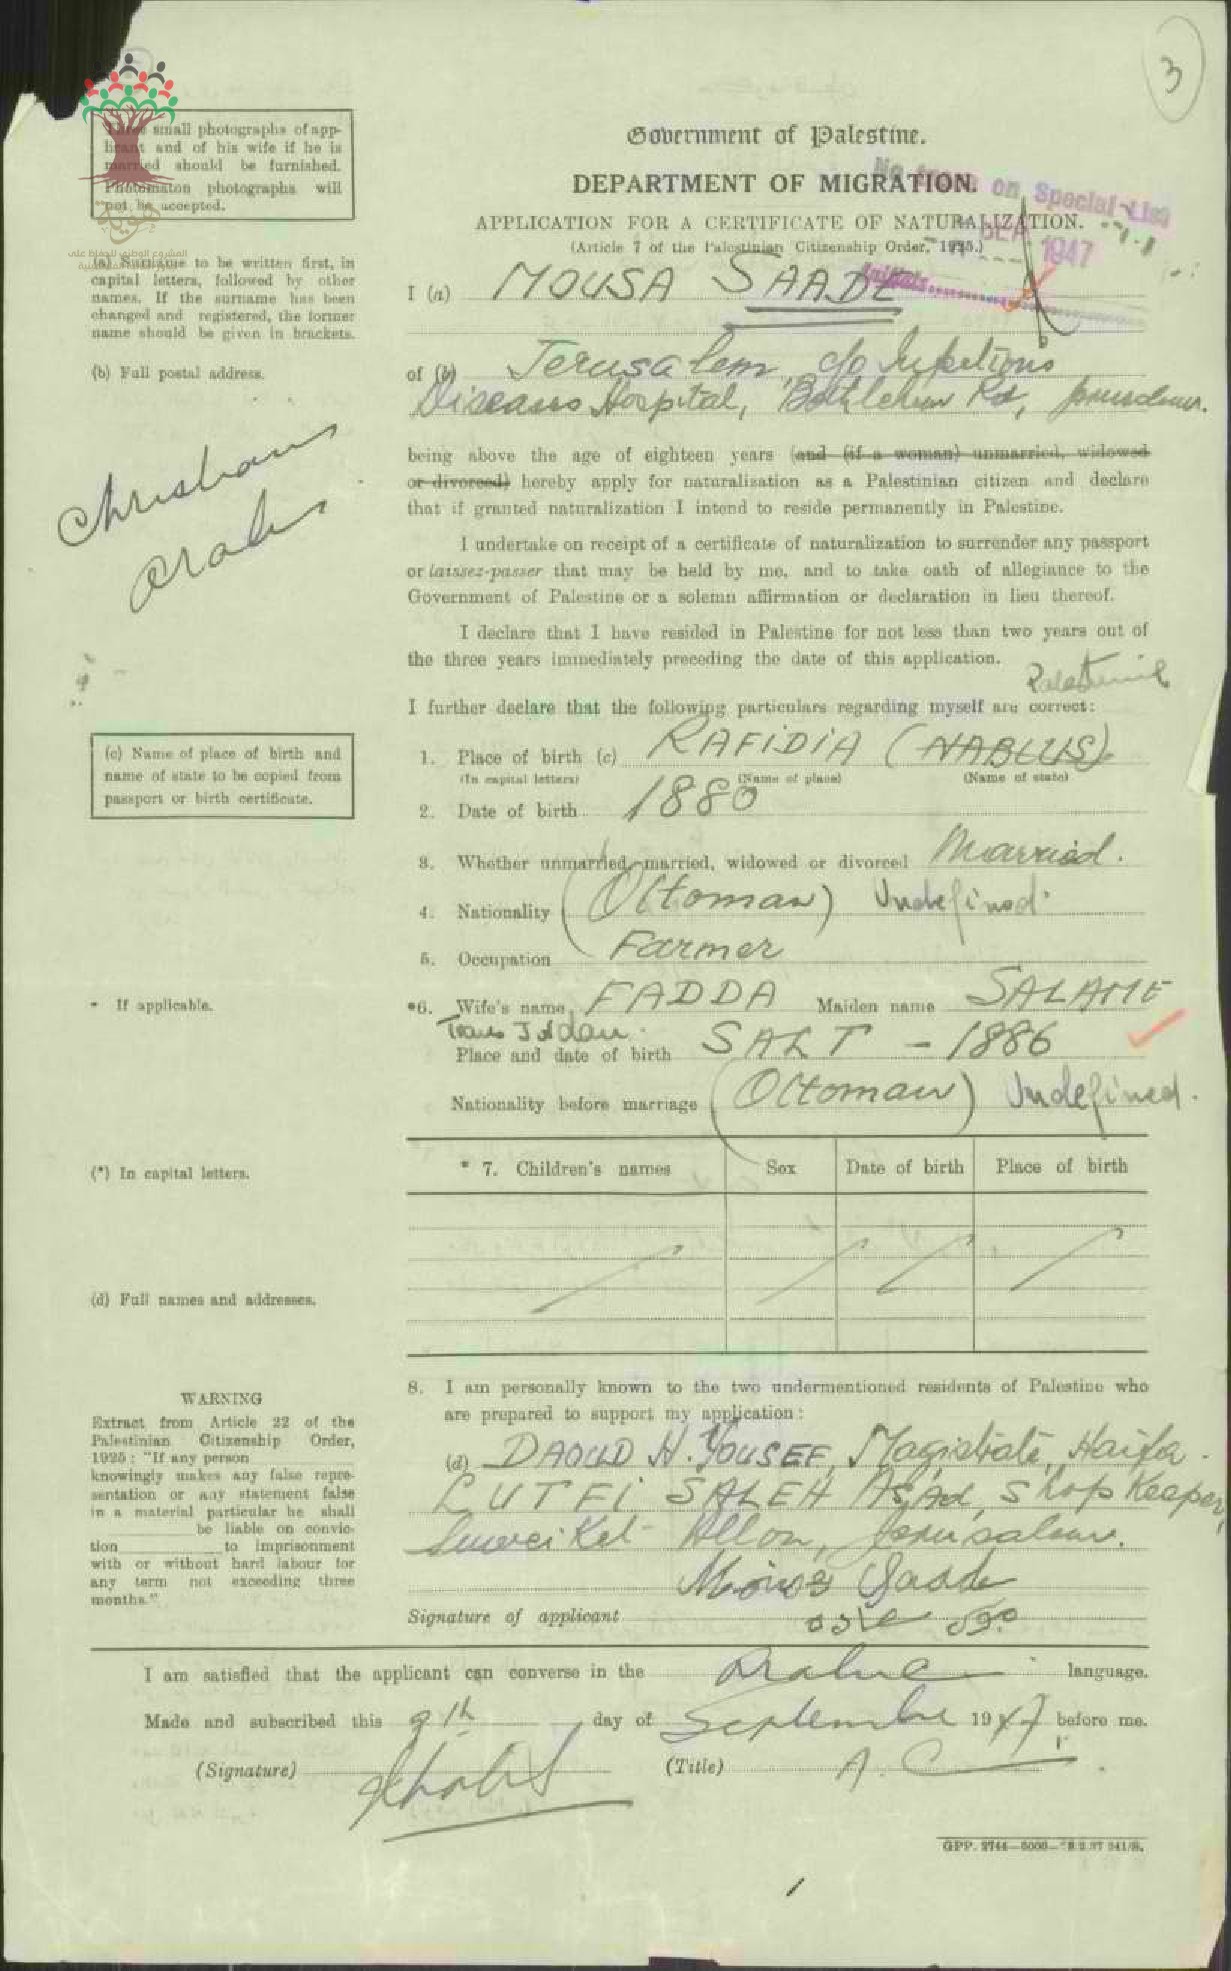 3
Three small photographs of app-
licant and of his wife if he is
married should be furnished.
Photomaton photographs will
not be accepted.
هوية
Government of Palestine.
DEPARTMENT OF MIGRATION.
No trace on Special List
APPLICATION FOR A CERTIFICATE OF NATURALIZATION.
(Article 7 of the Palestinian Citizenship Order, 1925.)
SEP 1947
Initials
(a) Surname to be written first, in
capital letters, followed by other
names. If the surname has been
changed and registered, the former
name should be given in brackets.
I (a) MOUSA SAADE
(b) Full postal address.
of (b) Jerusalem, c/o Infectious
Diseases Hospital, Bethlehem Rd, Jerusalem.
Christian
Arab
being above the age of eighteen years (and (if a woman) unmarried, widowed
or divorced) hereby apply for naturalization as a Palestinian citizen and declare
that if granted naturalization I intend to reside permanently in Palestine.
I undertake on receipt of a certificate of naturalization to surrender any passport
or laissez-passer that may be held by me, and to take oath of allegiance to the
Government of Palestine or a solemn affirmation or declaration in lieu thereof.
I declare that I have resided in Palestine for not less than two years out of
the three years immediately preceding the date of this application.
I further declare that the following particulars regarding myself are correct:
Palestine
(c) Name of place of birth and
name of state to be copied from
passport or birth certificate.
1. Place of birth (c) RAFIDIA (NABLUS)
(In capital letters) (Name of place) (Name of state)
2. Date of birth 1880
3. Whether unmarried, married, widowed or divorced Married.
4. Nationality (Ottoman) Undefined.
5. Occupation Farmer
* If applicable.
*6. Wife's name FADDA Maiden name SALAME
Trans Jordan.
Place and date of birth SALT - 1886
Nationality before marriage (Ottoman) Undefined.
(*) In capital letters.
* 7. Children's names Sex Date of birth Place of birth
(d) Full names and addresses.
8. I am personally known to the two undermentioned residents of Palestine who
are prepared to support my application:
(d) DAOUD H. YOUSEF, Magistrate, Haifa.
LUTFI SALEH As'ad, Shop Keeper,
Allon, Jerusalem.
WARNING
Extract from Article 22 of the
Palestinian Citizenship Order,
1925: "If any person
knowingly makes any false repre-
sentation or any statement false
in a material particular he shall
be liable on convic-
tion to imprisonment
with or without hard labour for
any term not exceeding three
months."
Saade
Signature of applicant
I am satisfied that the applicant can converse in the Arabic language.
Made and subscribed this 9th day of September 1947 before me.
(Signature) (Title)
GPP. 2744—5000—